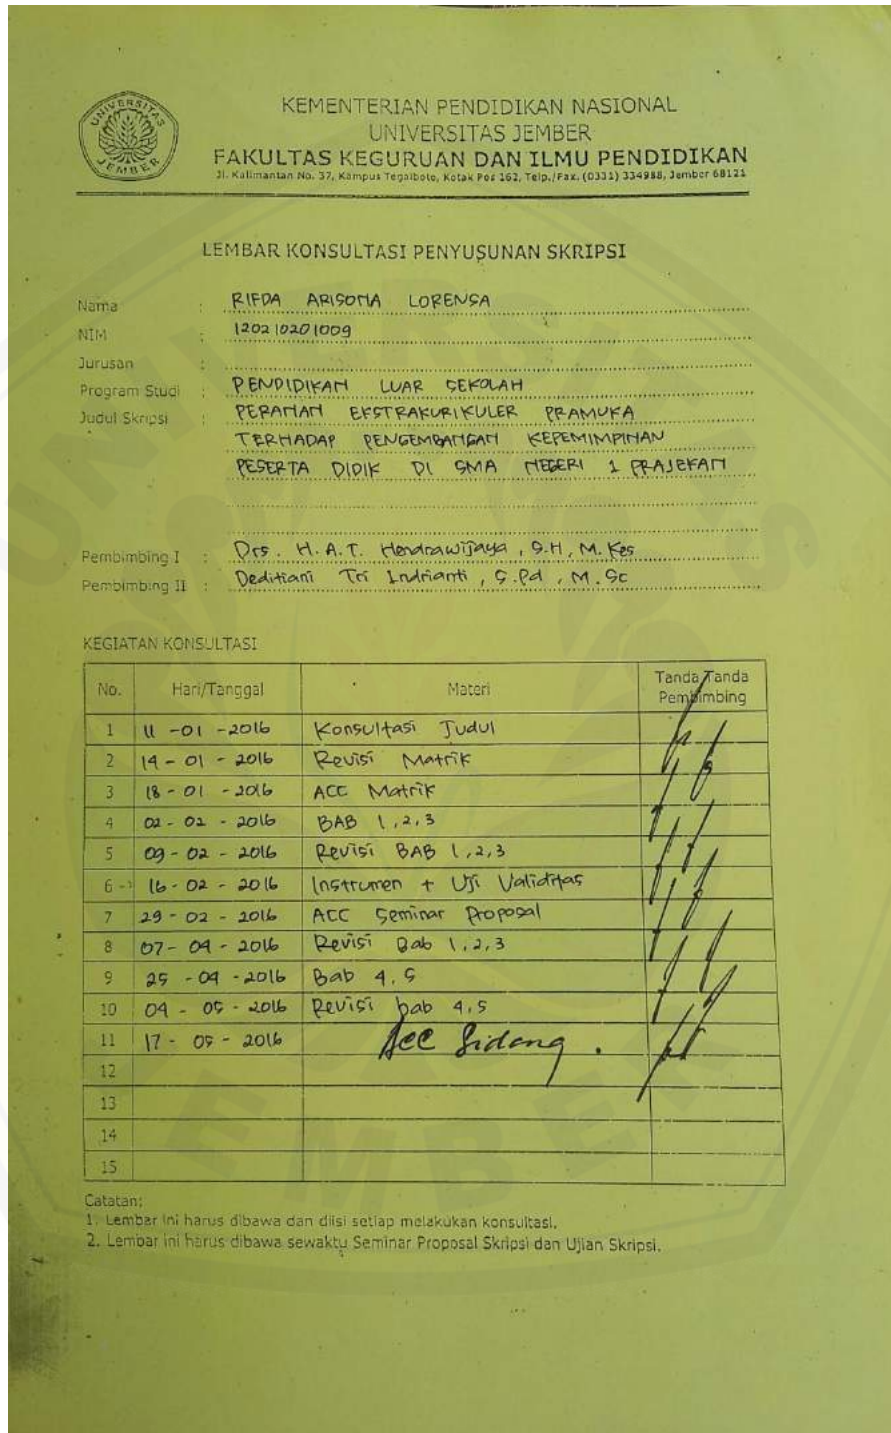 UNIVERSITAS
JEMBER
KEMENTERIAN PENDIDIKAN NASIONAL
UNIVERSITAS JEMBER
FAKULTAS KEGURUAN DAN ILMU PENDIDIKAN
Jl. Kalimantan No. 37, Kampus Tegalboto, Kotak Pos 162, Telp./Fax. (0331) 334988, Jember 68121
LEMBAR KONSULTASI PENYUSUNAN SKRIPSI
Nama : RIFDA ARISOMA LORENSA
NIM : 120210201009
Jurusan :
Program Studi : PENDIDIKAN LUAR SEKOLAH
Judul Skripsi : PERANAN EKSTRAKURIKULER PRAMUKA
TERHADAP PENGEMBANGAN KEPEMIMPINAN
PESERTA DIDIK DI SMA NEGERI 1 PRAJEKAN
Pembimbing I : Drs. H. A.T. Hendrawijaya, S.H, M. Kes
Pembimbing II : Deditiani Tri Indrianti, S.Pd, M.Sc
KEGIATAN KONSULTASI
No. Hari/Tanggal Materi Tanda Tanda Pembimbing
1 11 - 01 - 2016 Konsultasi Judul
2 14 - 01 - 2016 Revisi Matrik
3 18 - 01 - 2016 ACC Matrik
4 02 - 02 - 2016 BAB 1,2,3
5 09 - 02 - 2016 Revisi BAB 1,2,3
6 16 - 02 - 2016 Instrumen + Uji Validitas
7 29 - 02 - 2016 ACC Seminar Proposal
8 07 - 04 - 2016 Revisi Bab 1,2,3
9 25 - 04 - 2016 Bab 4,5
10 04 - 05 - 2016 Revisi bab 4,5
11 17 - 05 - 2016 Acc Sidang.
12
13
14
15
Catatan:
1. Lembar ini harus dibawa dan diisi setiap melakukan konsultasi.
2. Lembar ini harus dibawa sewaktu Seminar Proposal Skripsi dan Ujian Skripsi.